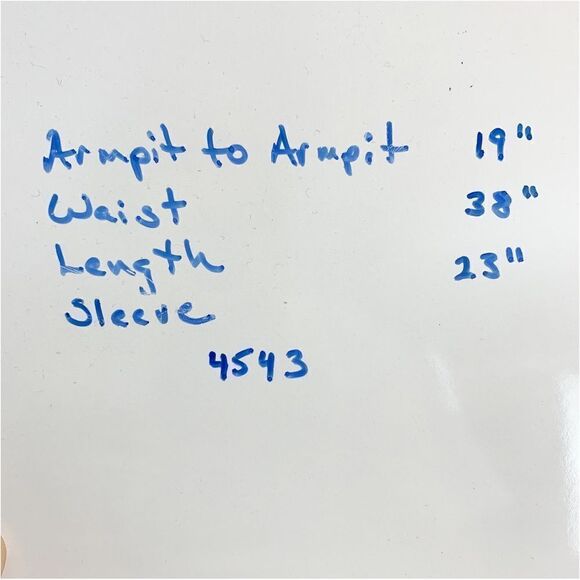 Armpit to Armpit 19"
Waist 38"
Length 23"
Sleeve
4543